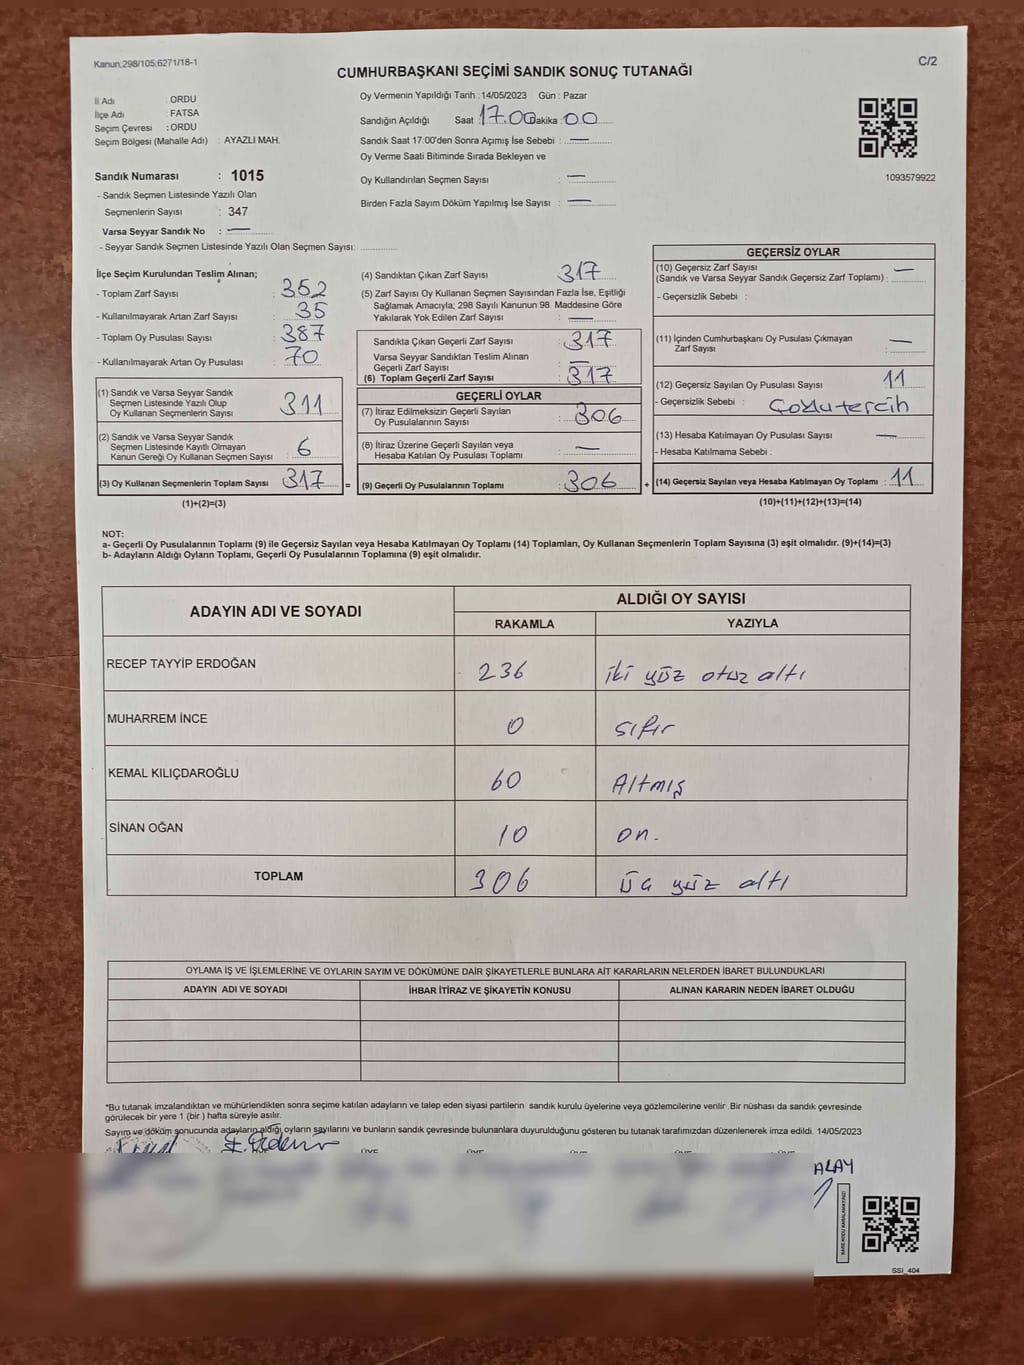 Kanun;298/105;6271/18-1
C/2
CUMHURBAŞKANI SEÇİMİ SANDIK SONUÇ TUTANAĞI
İl Adı : ORDU
İlçe Adı : FATSA
Seçim Çevresi : ORDU
Seçim Bölgesi (Mahalle Adı) : AYAZLI MAH.
Oy Vermenin Yapıldığı Tarih :14/05/2023 Gün : Pazar
Sandığın Açıldığı Saat : 17.00 Dakika : 00
Sandık Saat 17:00'den Sonra Açımış İse Sebebi : —
Oy Verme Saati Bitiminde Sırada Bekleyen ve
Oy Kullandırılan Seçmen Sayısı : —
Birden Fazla Sayım Döküm Yapılmış İse Sayısı : —
1093579922
Sandık Numarası : 1015
- Sandık Seçmen Listesinde Yazılı Olan
Seçmenlerin Sayısı : 347
Varsa Seyyar Sandık No : —
- Seyyar Sandık Seçmen Listesinde Yazılı Olan Seçmen Sayısı:
İlçe Seçim Kurulundan Teslim Alınan;
- Toplam Zarf Sayısı : 352
- Kullanılmayarak Artan Zarf Sayısı : 35
- Toplam Oy Pusulası Sayısı : 387
- Kullanılmayarak Artan Oy Pusulası : 70
(1) Sandık ve Varsa Seyyar Sandık
Seçmen Listesinde Yazılı Olup
Oy Kullanan Seçmenlerin Sayısı : 311
(2) Sandık ve Varsa Seyyar Sandık
Seçmen Listesinde Kayıtlı Olmayan
Kanun Gereği Oy Kullanan Seçmen Sayısı : 6
(3) Oy Kullanan Seçmenlerin Toplam Sayısı : 317 =
(1)+(2)=(3)
(4) Sandıktan Çıkan Zarf Sayısı : 317
(5) Zarf Sayısı Oy Kullanan Seçmen Sayısından Fazla İse, Eşitliği
Sağlamak Amacıyla; 298 Sayılı Kanunun 98. Maddesine Göre
Yakılarak Yok Edilen Zarf Sayısı : —
Sandıkta Çıkan Geçerli Zarf Sayısı : 317
Varsa Seyyar Sandıktan Teslim Alınan
Geçerli Zarf Sayısı : —
(6) Toplam Geçerli Zarf Sayısı : 317
GEÇERLİ OYLAR
(7) İtiraz Edilmeksizin Geçerli Sayılan
Oy Pusulalarının Sayısı : 306
(8) İtiraz Üzerine Geçerli Sayılan veya
Hesaba Katılan Oy Pusulası Toplamı : —
(9) Geçerli Oy Pusulalarının Toplamı : 306 +
GEÇERSİZ OYLAR
(10) Geçersiz Zarf Sayısı
(Sandık ve Varsa Seyyar Sandık Geçersiz Zarf Toplamı) : —
- Geçersizlik Sebebi :
(11) İçinden Cumhurbaşkanı Oy Pusulası Çıkmayan
Zarf Sayısı : —
(12) Geçersiz Sayılan Oy Pusulası Sayısı : 11
- Geçersizlik Sebebi : Çoklu tercih
(13) Hesaba Katılmayan Oy Pusulası Sayısı : —
- Hesaba Katılmama Sebebi :
(14) Geçersiz Sayılan veya Hesaba Katılmayan Oy Toplamı : 11
(10)+(11)+(12)+(13)=(14)
NOT:
a- Geçerli Oy Pusulalarının Toplamı (9) ile Geçersiz Sayılan veya Hesaba Katılmayan Oy Toplamı (14) Toplamları, Oy Kullanan Seçmenlerin Toplam Sayısına (3) eşit olmalıdır. (9)+(14)=(3)
b- Adayların Aldığı Oyların Toplamı, Geçerli Oy Pusulalarının Toplamına (9) eşit olmalıdır.
ADAYIN ADI VE SOYADI
ALDIĞI OY SAYISI
RAKAMLA YAZIYLA
RECEP TAYYİP ERDOĞAN 236 iki yüz otuz altı
MUHARREM İNCE 0 sıfır
KEMAL KILIÇDAROĞLU 60 Altmış
SİNAN OĞAN 10 on.
TOPLAM 306 üç yüz altı
OYLAMA İŞ VE İŞLEMLERİNE VE OYLARIN SAYIM VE DÖKÜMÜNE DAİR ŞİKAYETLERLE BUNLARA AİT KARARLARIN NELERDEN İBARET BULUNDUKLARI
ADAYIN ADI VE SOYADI İHBAR İTİRAZ VE ŞİKAYETİN KONUSU ALINAN KARARIN NEDEN İBARET OLDUĞU
*Bu tutanak imzalandıktan ve mühürlendikten sonra seçime katılan adayların ve talep eden siyasi partilerin sandık kurulu üyelerine veya gözlemcilerine verilir .Bir nüshası da sandık çevresinde
görülecek bir yere 1 (bir ) hafta süreyle asılır.
Sayım ve döküm sonucunda adayların aldığı oyların sayılarını ve bunların sandık çevresinde bulunanlara duyurulduğunu gösteren bu tutanak tarafımızdan düzenlenerek imza edildi. 14/05/2023
ALAY
SSI_404